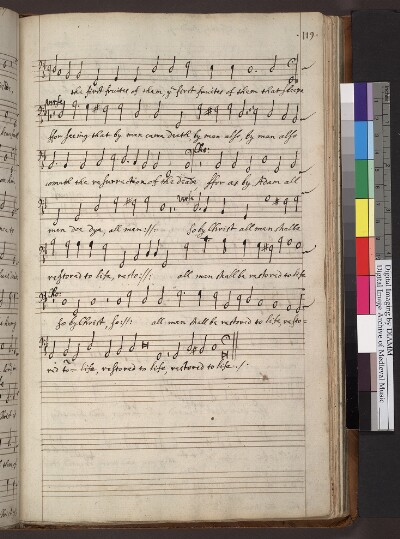 ·119·
the first fruites of them, yͤ first fruites of them that sleepe
verse
ffor seeing that by man came death by man also, by man also
Cho:
cometh the resurrection of the deade. ffor as by Adam all
verse
men doe dye, all men ://: So by Christ all men shalbe
restored to life, resto ://: all men shall be restored to life
Cho:
so by Christ, so ://: all men shall be restored to life, resto-
red to life, restored to life, restored to life ./.
Digital Imaging by DIAMM
Digital Image Archive of Medieval Music